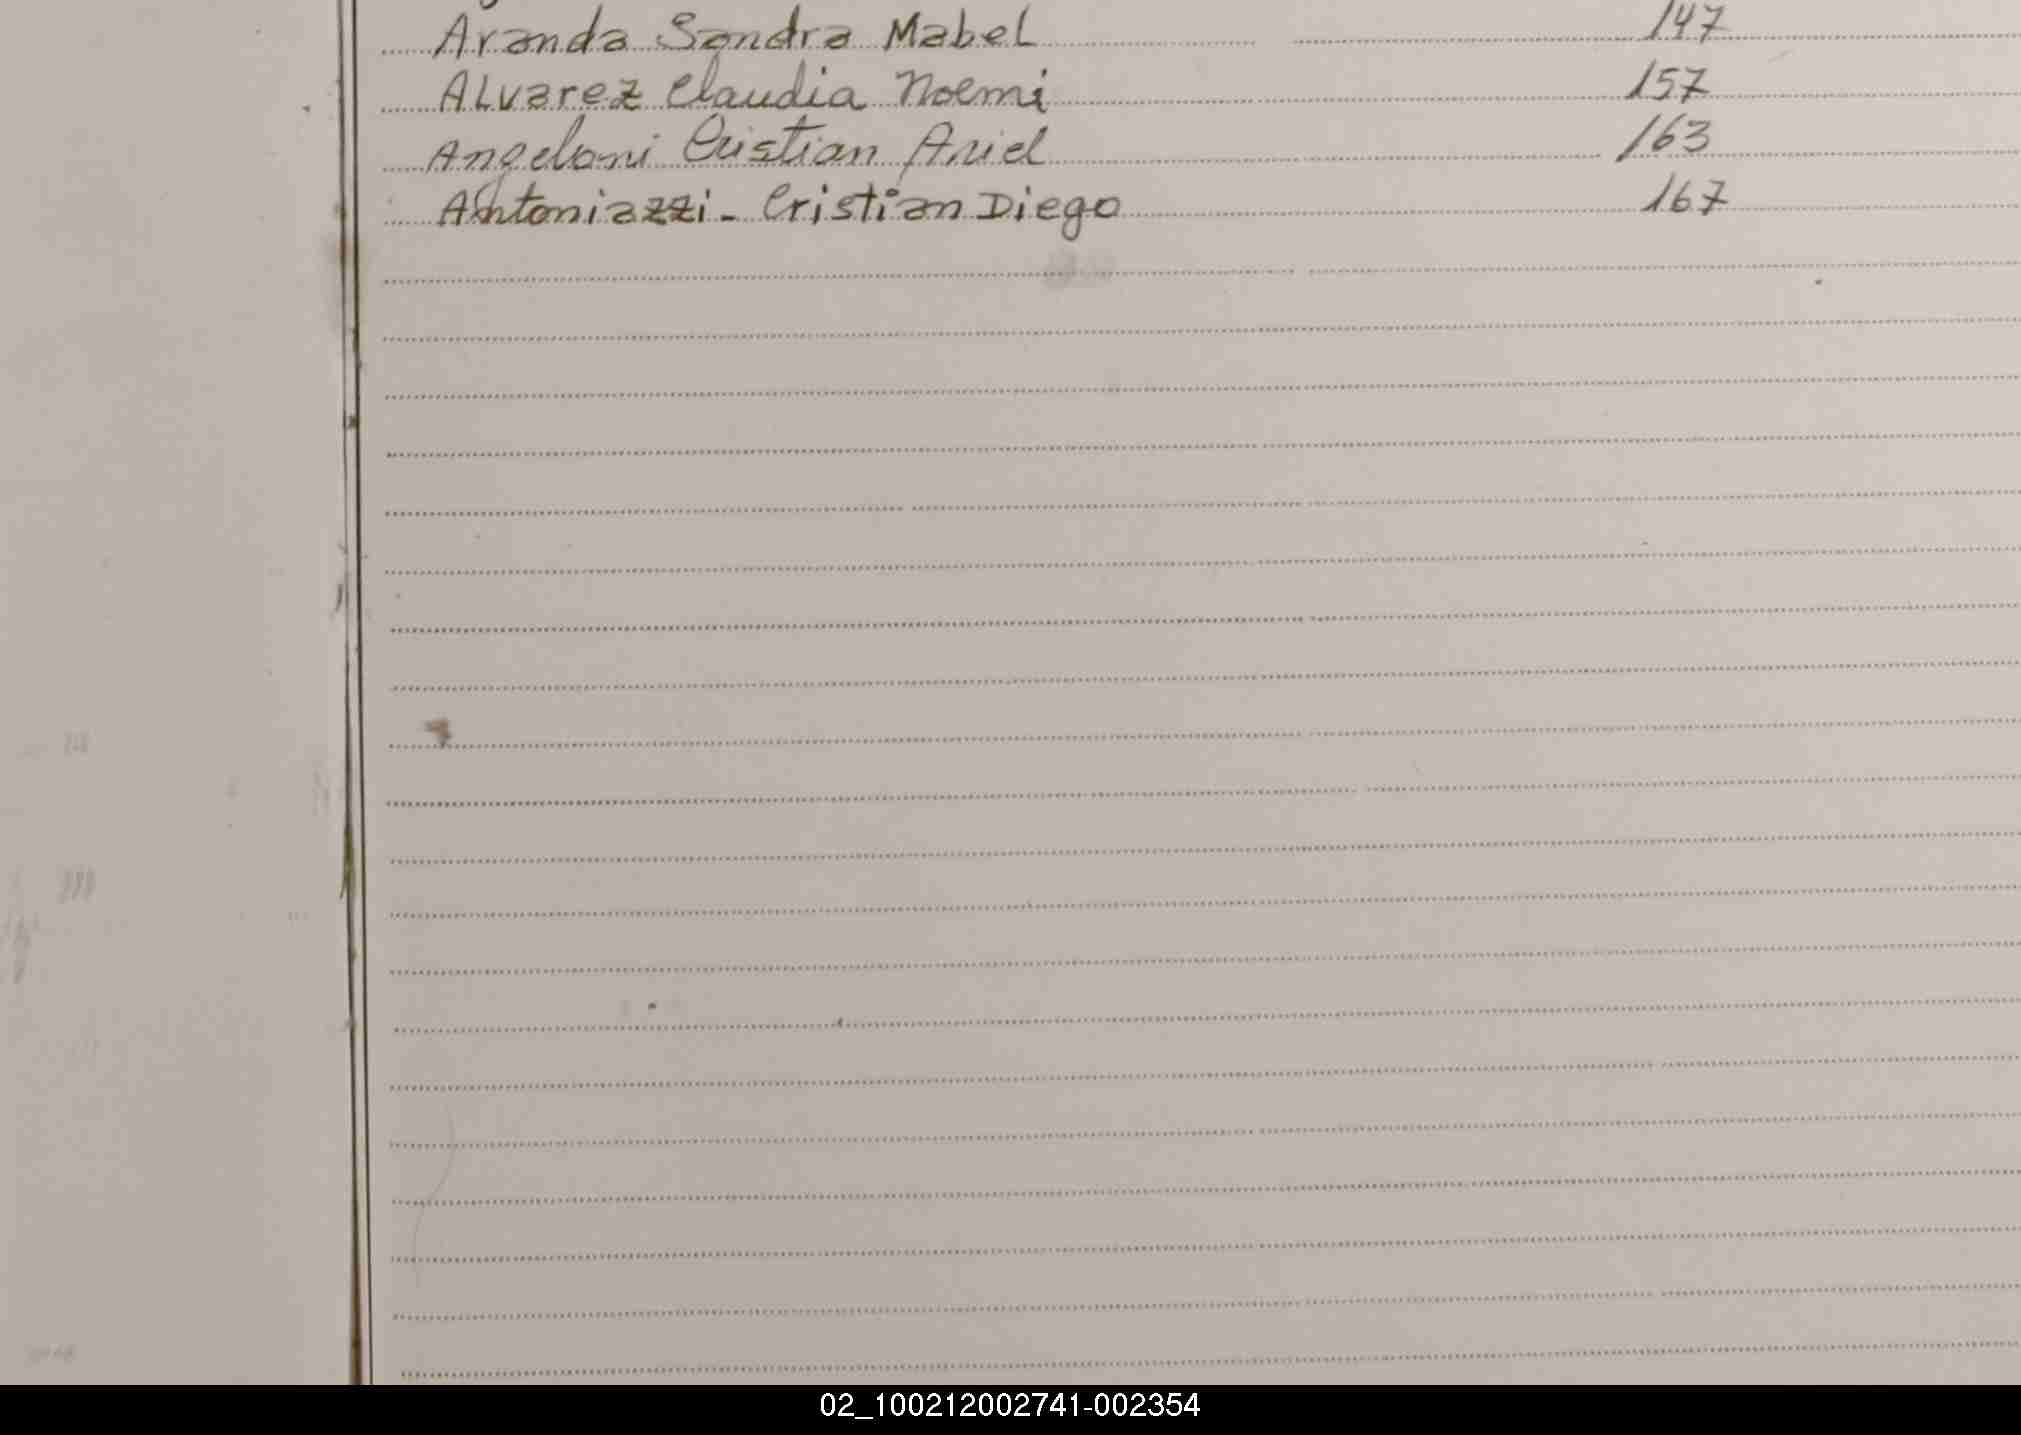 Aranda Sandra Mabel 147
Alvarez Claudia Noemi 157
Angeloni Cristian Ariel 163
Antoniazzi - Cristian Diego 167
02_100212002741-002354